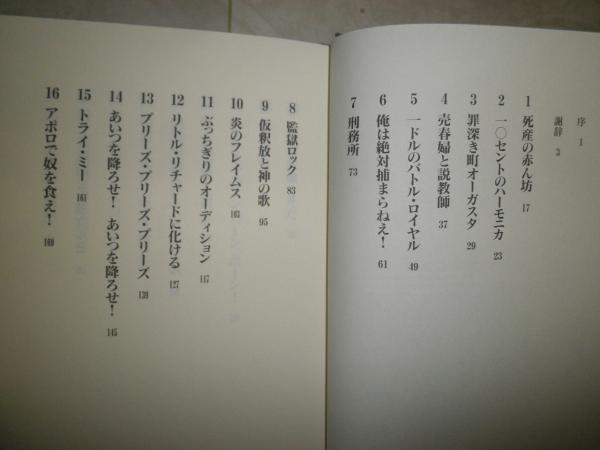 序 1
謝辞 3
1 死産の赤ん坊 17
2 一〇セントのハーモニカ 23
3 罪深き町オーガスタ 29
4 売春婦と説教師 37
5 一ドルのバトル・ロイヤル 49
6 俺は絶対捕まらねえ! 61
7 刑務所 73
8 監獄ロック 83
9 仮釈放と神の歌 95
10 炎のフレイムス 103
11 ぶっちぎりのオーディション 117
12 リトル・リチャードに化ける 127
13 プリーズ・プリーズ・プリーズ 139
14 あいつを降ろせ! あいつを降ろせ! 145
15 トライ・ミー 161
16 アポロで奴を食え! 169